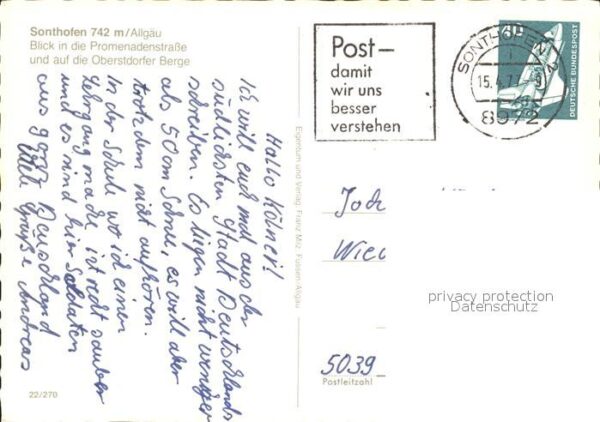 Sonthofen 742 m/Allgäu
Blick in die Promenadenstraße
und auf die Oberstdorfer Berge
Hallo Kölner!
Ich will euch mal aus der
südlichsten Stadt Deutschlands
schreiben. Es liegen nicht weniger
als 50 cm Schnee, es will aber
trotzdem nicht aufhören.
In der Schule wo ich einen
Lehrgang mache ist recht sauber
und es sind hier Soldaten
aus ganz Deutschland
Viele Grüße Andreas
22/270
Eigentum und Verlag: Franz Milz, Füssen-Allgäu
Post–
damit
wir uns
besser
verstehen
SONTHOFEN 2
15.4.77
9
8972
DEUTSCHE BUNDESPOST
privacy protection
Datenschutz
5039
Postleitzahl